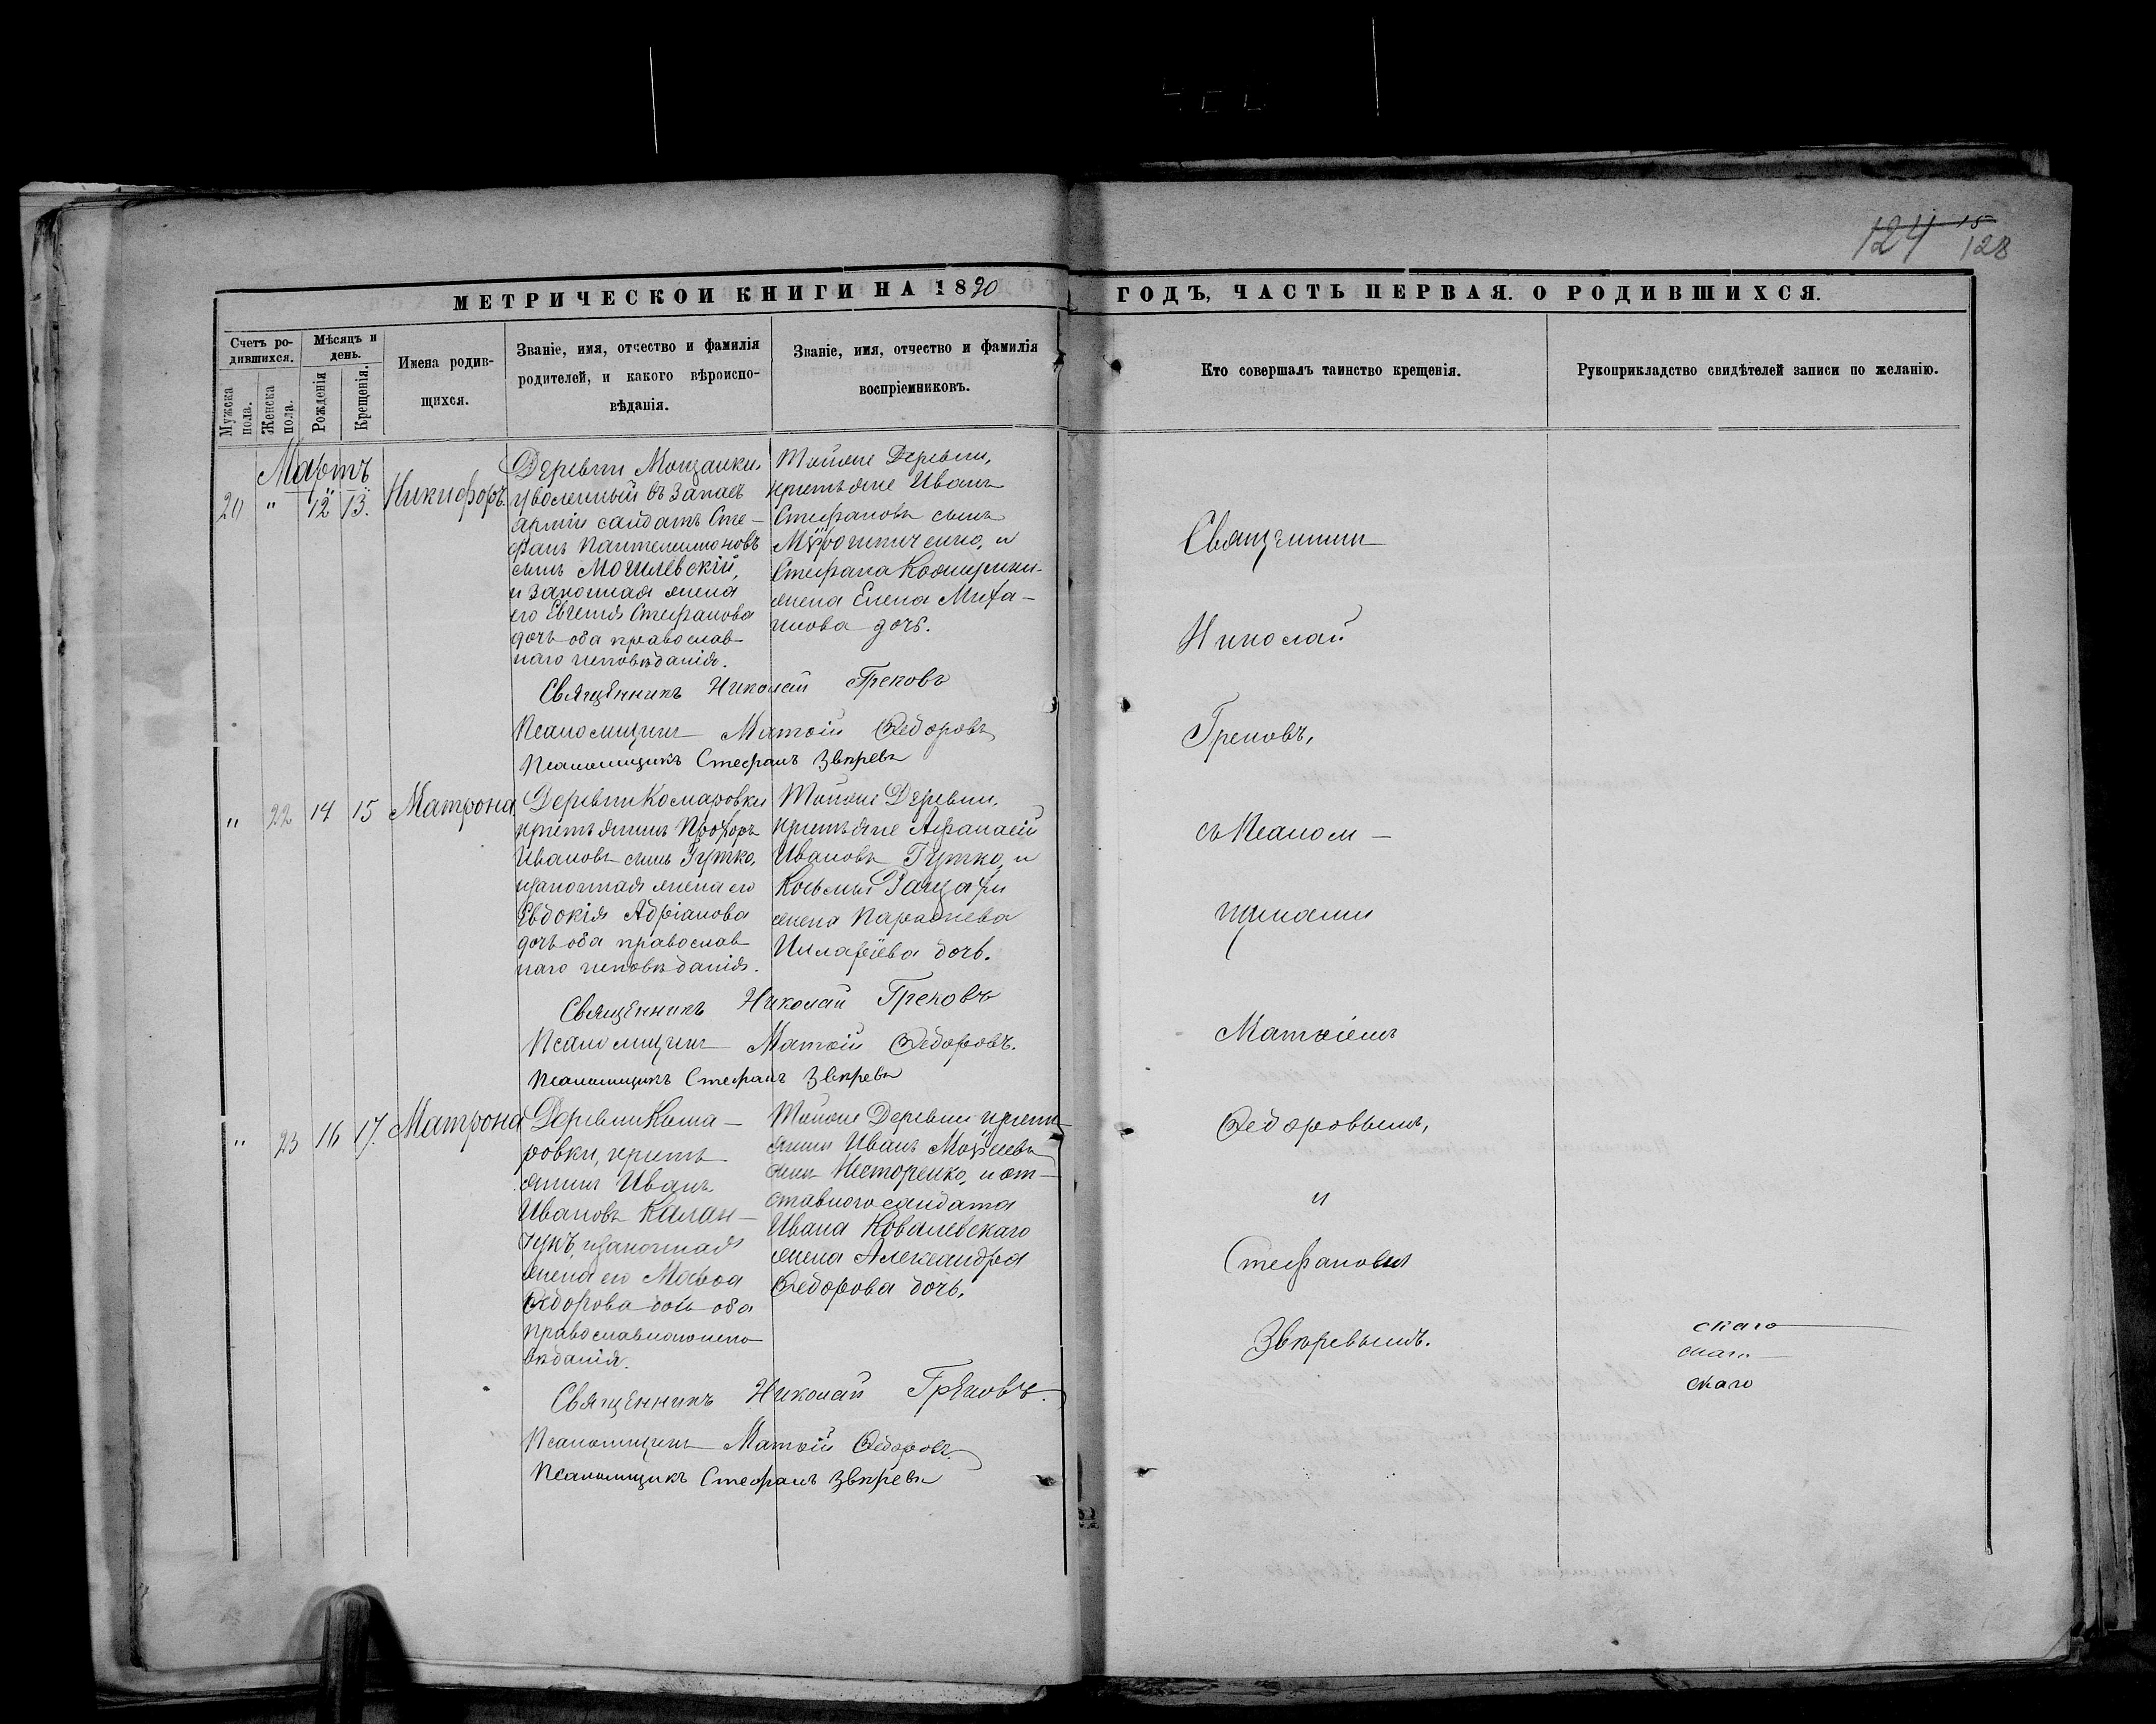 124 15
128
МЕТРИЧЕСКОЙ КНИГИ НА 1890 ГОДЪ, ЧАСТЬ ПЕРВАЯ. О РОДИВШИХСЯ.
Счетъ ро-
дившихся.
Мужска пола.
Женска пола.
Мѣсяцъ и день.
Рожденія
Крещенія.
Имена родив-
щихся.
Званіе, имя, отчество и фамилія
родителей, и какого вѣроиспо-
вѣданія.
Званіе, имя, отчество и фамилія
воспріемниковъ.
Кто совершалъ таинство крещенія.
Рукоприкладство свидѣтелей записи по желанію.
Мартъ
20 " 12 13. Никифоръ.
Деревни Мощанки,
уволенный въ запасъ
арміи салдатъ Сте-
фанъ Пантелимоновъ
сынъ Могилевскій,
и законная жена
его Евгенія Стефанова
дочь оба православ-
наго исповѣданія.
Тойже Деревни,
крестьяне Иванъ
Стефановъ сынъ
и
Стефана
жена Елена Миха-
илова дочь.
Священникъ Николай Грековъ
Псаломщикъ Матѳій Ѳедоровъ
Псаломщикъ Стефанъ Звѣревъ
" 22 14 15 Матрона
Деревни Комаровки
крестьянинъ Прохоръ
Ивановъ сынъ Гутко,
и законная жена его
Евдокія Адріанова
дочь оба православ
наго исповѣданія.
Тойже Деревни,
крестьяне Афанасій
Ивановъ Гутко, и
Косьмы
жена Параскева
Иларіева дочь.
Священникъ Николай Грековъ
Псаломщикъ Матѳій Ѳедоровъ.
Псаломщикъ Стефанъ Звѣревъ
" 23 16 17. Матрона
Деревни Кома-
ровки, кресть
янинъ Иванъ
Ивановъ Калан-
чукъ, и законная
жена его Марѳа
Ѳедорова дочь оба
православнаго испо
вѣданія.
Тойже Деревни кресть
янинъ Иванъ Моѵсеевъ
сынъ Несторенко, и от-
ставного салдата
Ивана Ковалевскаго
жена Александра
Ѳедорова дочь.
Священникъ Николай Грековъ.
Псаломщикъ Матѳій Ѳедоровъ
Псаломщикъ Стефанъ Звѣревъ
Священникъ
Николай
Грековъ,
съ Псалом-
щиками
Матѳіемъ
Ѳедоровымъ,
и
Стефаномъ
Звѣревымъ.
скаго
скаго
скаго